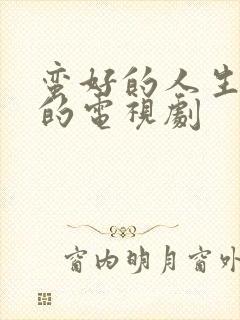 蛮好的人生
的電視劇
窗内明月窗外